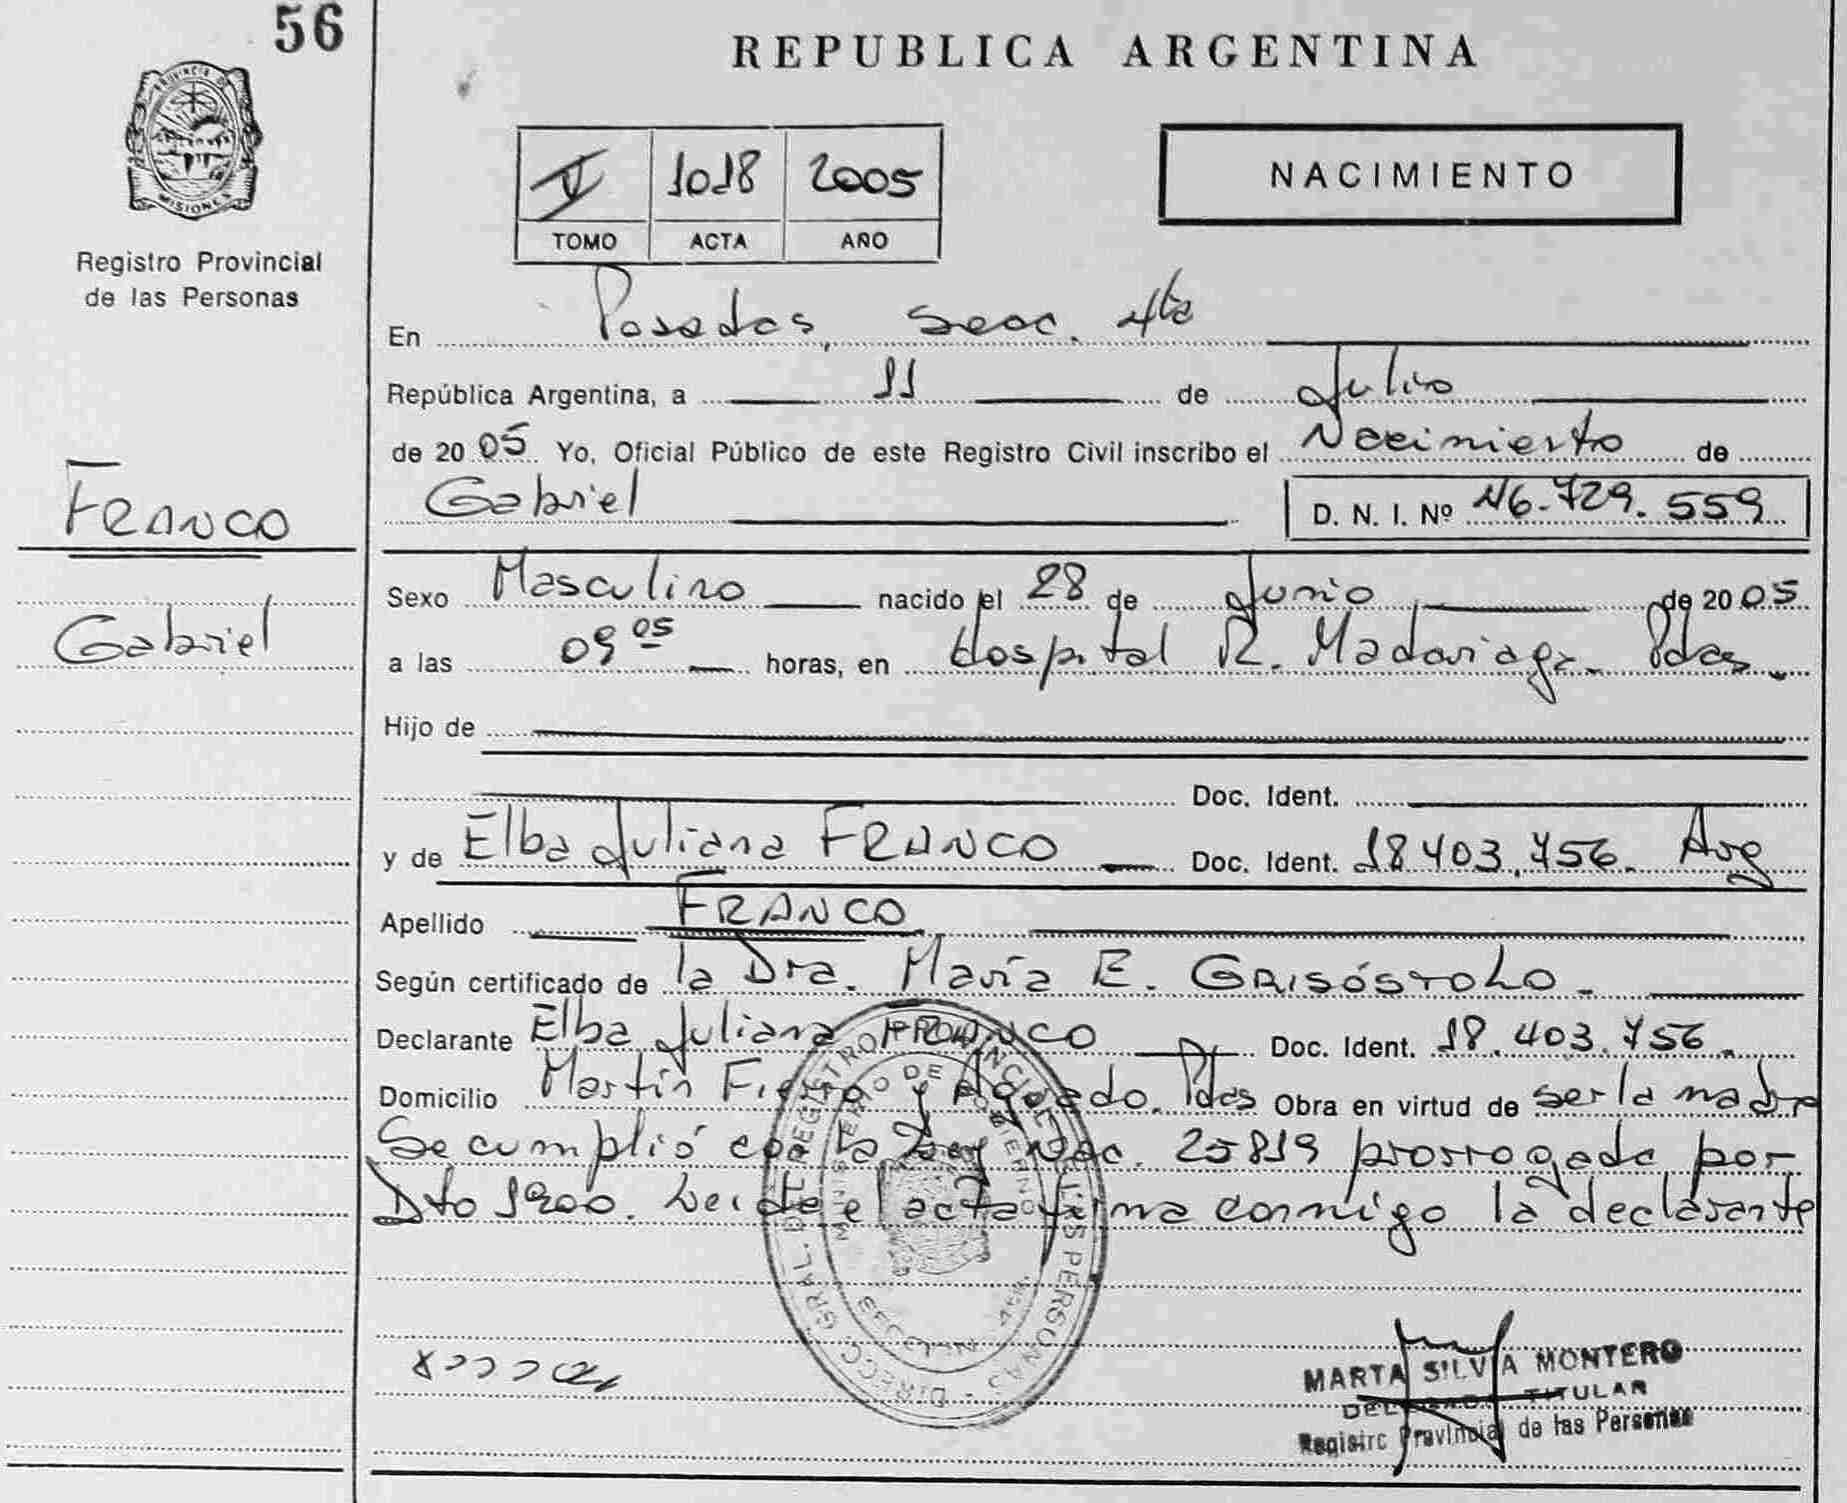 56
REPUBLICA ARGENTINA
PROVINCIA DE
MISIONES
Registro Provincial
de las Personas
1018 2005
TOMO ACTA AÑO
NACIMIENTO
En Posadas, Secc. 4ta
República Argentina, a 11 de Julio
de 2005 Yo, Oficial Público de este Registro Civil inscribo el Nacimiento de
Gabriel D. N. I. Nº 46.729.559
FRANCO
Gabriel
Sexo Masculino nacido el 28 de Junio de 2005
a las 09 05 horas, en Hospital R. Madariaga. Pdas.
Hijo de
Doc. Ident.
y de Elba Juliana FRANCO Doc. Ident. 18.403.756. Arg
Apellido FRANCO
Según certificado de la Dra. María E. GRISÓSTOMO.
Declarante Elba Juliana FRANCO Doc. Ident. 18.403.756.
Domicilio Martín Fierro y Aguado. Pdas Obra en virtud de ser la madre
Se cumplió con la Ley Nac. 25819 prorrogada por
Dto 1200. Leída el acta firma conmigo la declarante
DIRECC. GRAL. DEL REGISTRO PROVINCIAL DE LAS PERSONAS
MINISTERIO DE GOBIERNO
MARTA SILVIA MONTERO
TITULAR
Registro Provincial de las Personas